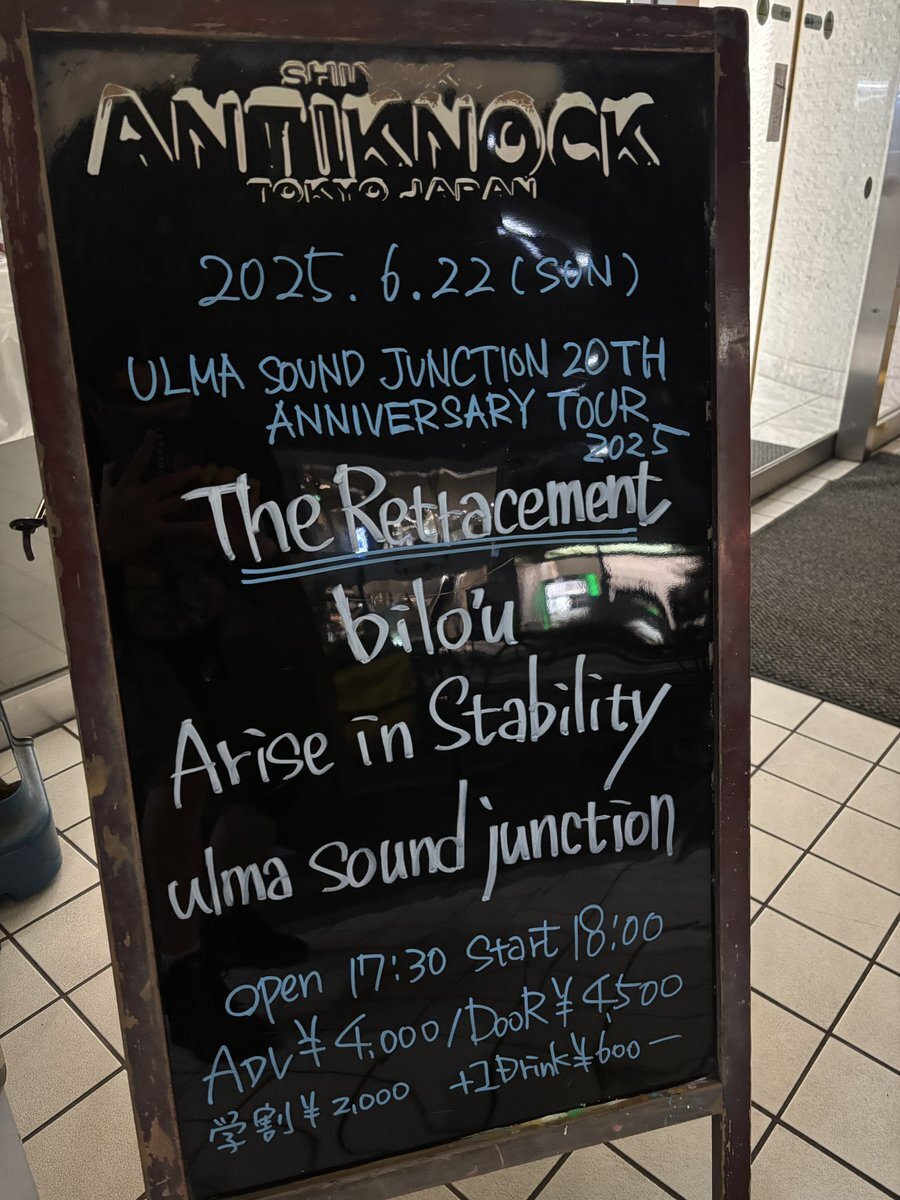 ANTIKNOCK
TOKYO JAPAN
2025.6.22(SUN)
ULMA SOUND JUNCTION 20TH
ANNIVERSARY TOUR
2025
The Rettacement
bilo'u
Arise in Stability
ulma sound junction
open 17:30 start 18:00
ADV ¥4,000/DOOR ¥4,500
学割¥2,000 +1Drink¥600-